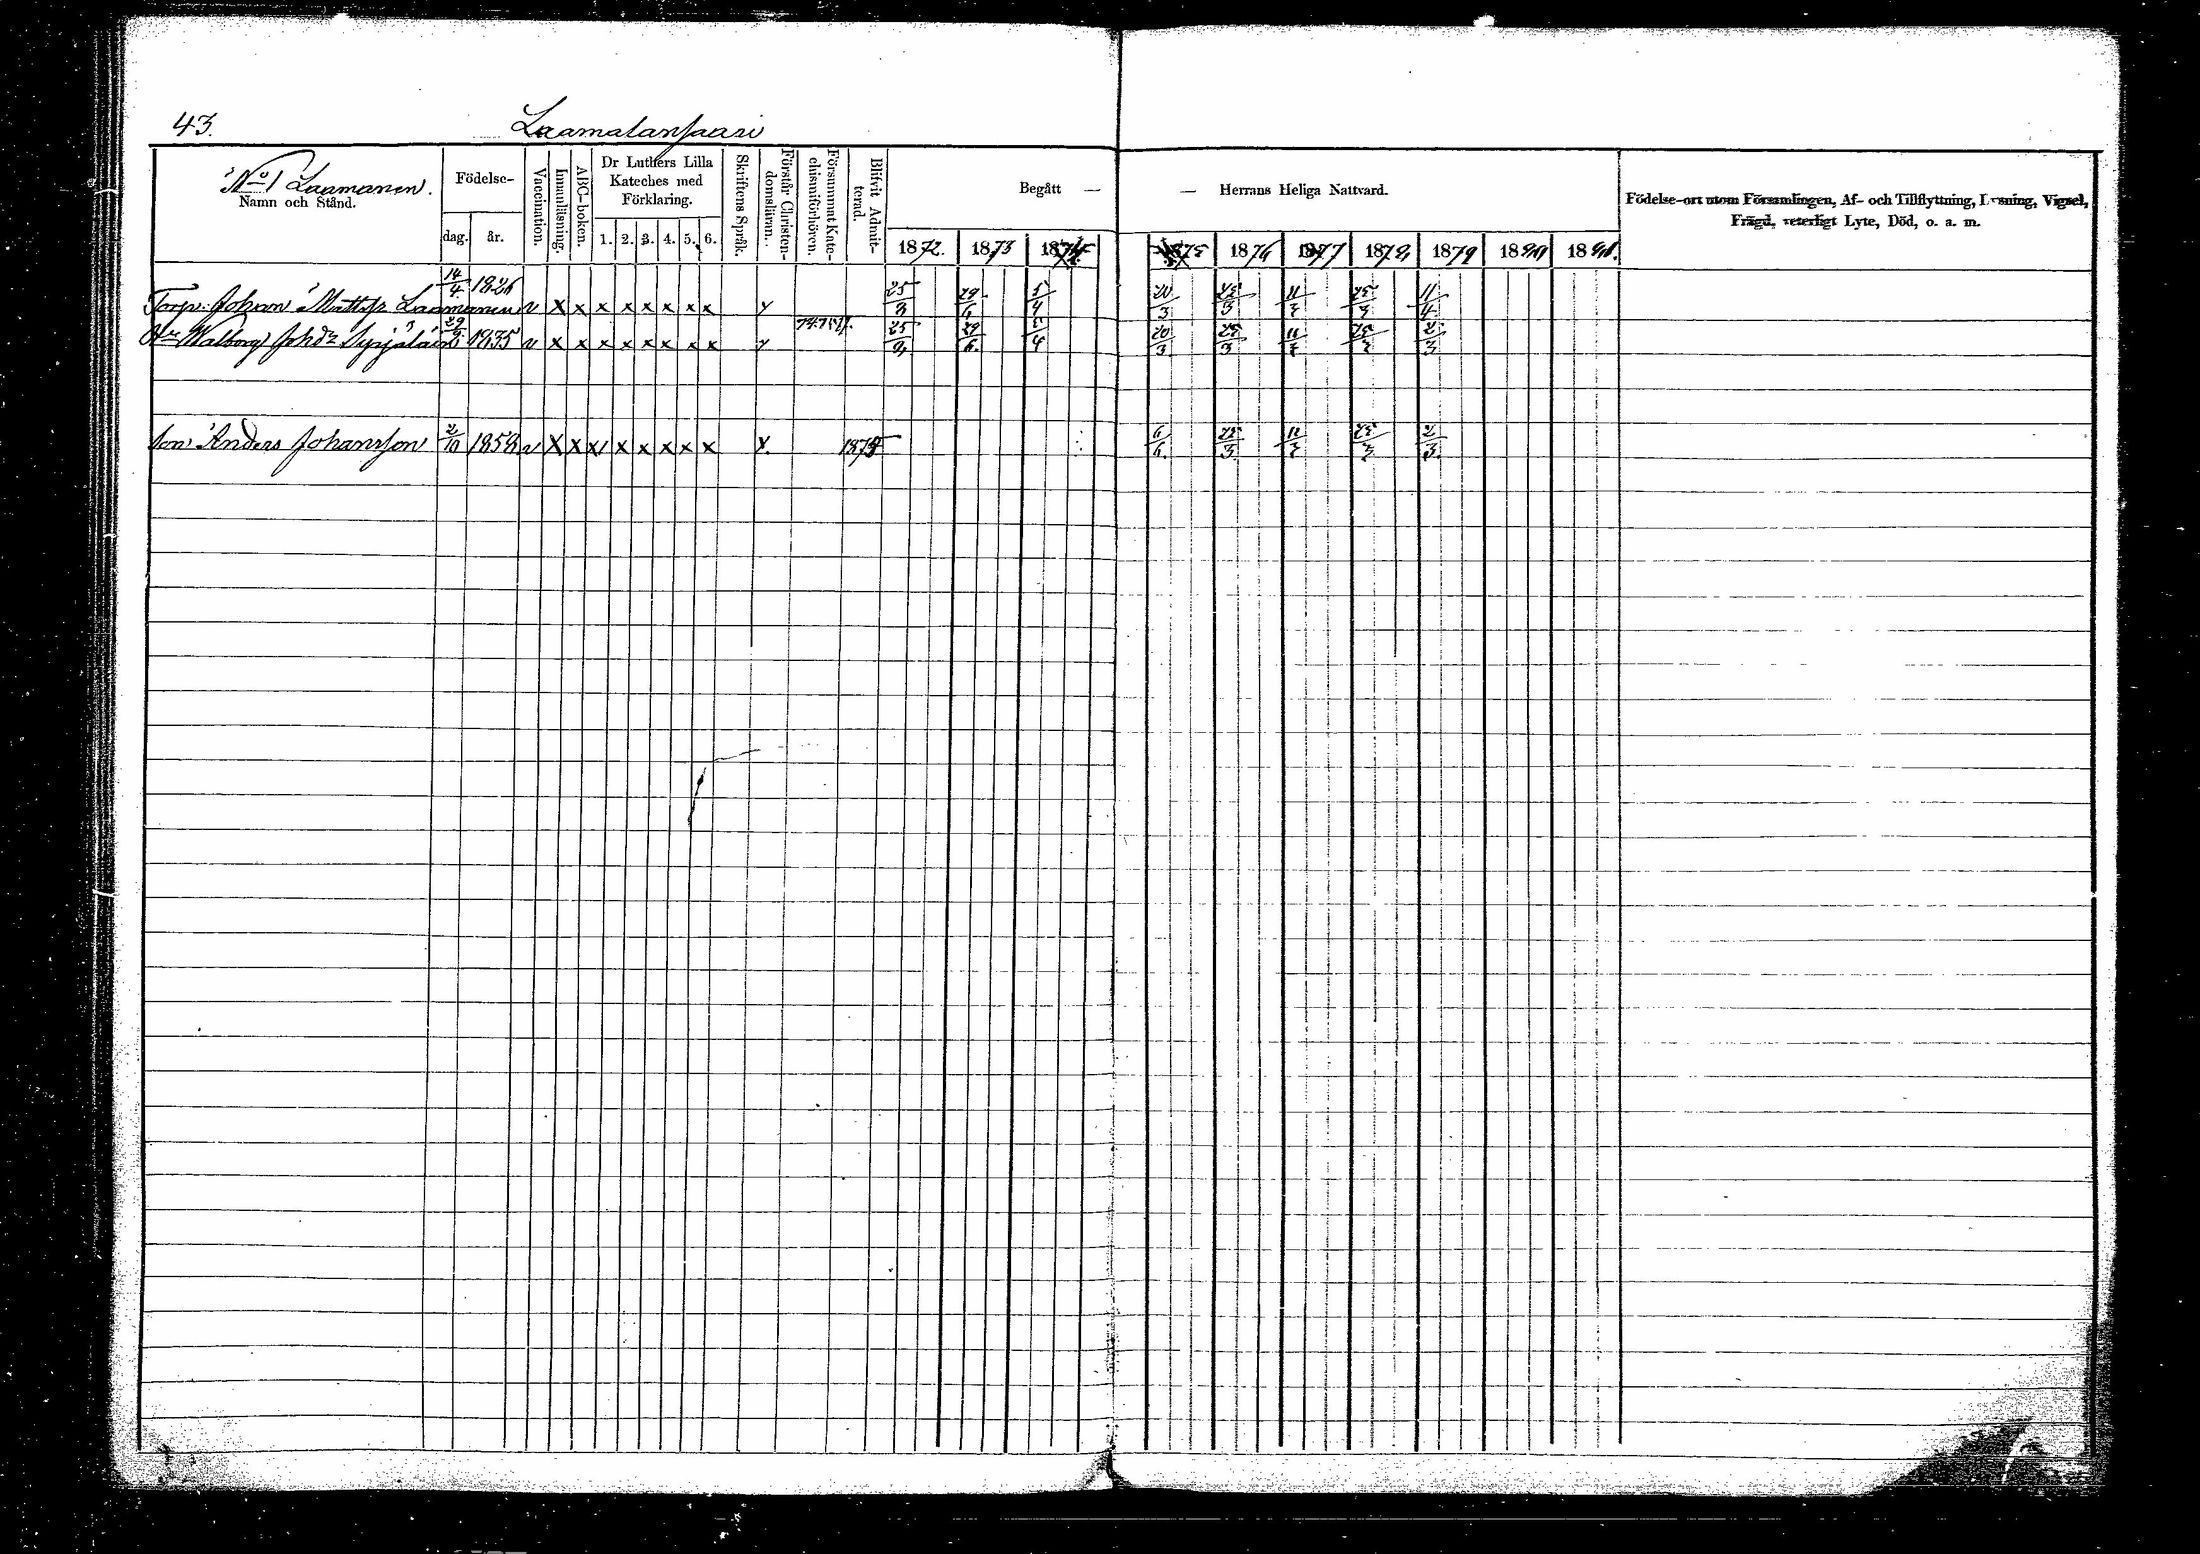 43. Laamalansaari
No 1 Laamanen.
Namn och Stånd.
Födelse-
dag. år.
Vaccination.
Innanläsning.
ABC-boken.
Dr Luthers Lilla
Kateches med
Förklaring.
1. 2. 3. 4. 5. 6.
Skriftens Språk.
Förstår Christen-
domsläran.
Försummat Kate-
chismiförhören.
Blifvit Admit-
terad.
Begått — — Herrans Heliga Nattvard.
1872. 1873 1874. 1875 1876 1877 1878 1879 1880 1881.
Födelse-ort utom Församlingen, Af- och Tillflyttning, Lysning, Vigsel,
Frägd, veterligt Lyte, Död, o. a. m.
Torp: Johan Mattss Laamanen 14/4 1826 v x x x x x x x x y 25/3 29/6 5/4 20/3 25/3 11/3 25/3 11/4
Hu Walborg Johdr Syrjäläin 29/9 1835 v x x x x x x x x y 25/3 29/6. 5/4 20/3 25/3 11/3 25/3 2/3
Son Anders Johansson 2/10 1858 v x x x x x x x x y. 1875 6/6. 25/3. 11/3 25/3 2/3.